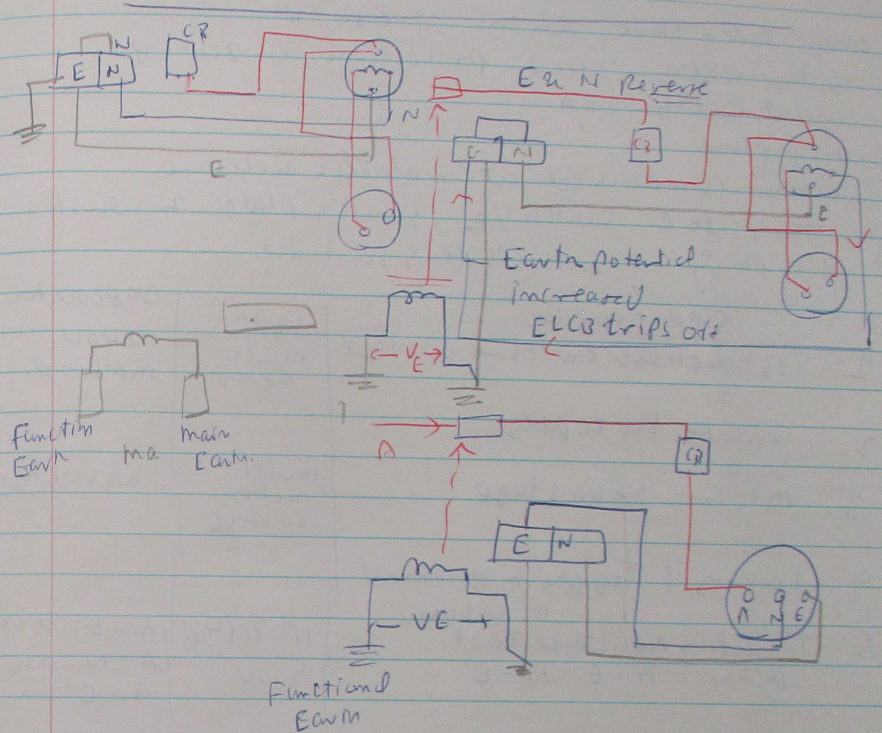 N
CB
E N
N
E
E & N Reverse
E N
CB
E
Earth potential
increased
ELCB trips off
VE
Function
Earth
ma
main
Earth.
A
CB
E N
A N E
VE
Functional
Earth